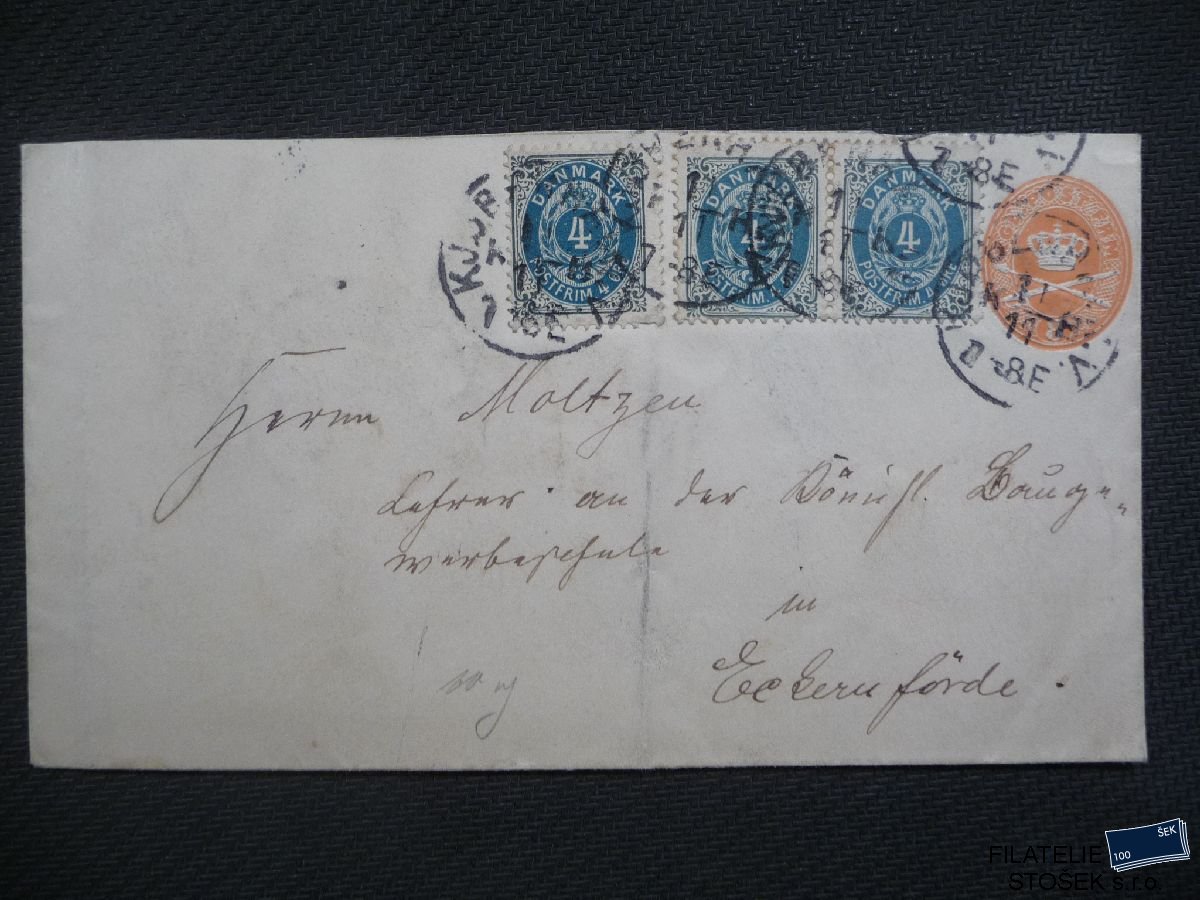 DANMARK
4
POSTFRIM. 4
DANMARK
4
POSTFRIM.
DANMARK
4
POSTFRIM.
KJØB
Herrn Moltzen
Lehrer an der Königl. Bauge-
werbeschule
in
Eckernförde.
100
ŠEK
FILATELIE
STOŠEK s.r.o.